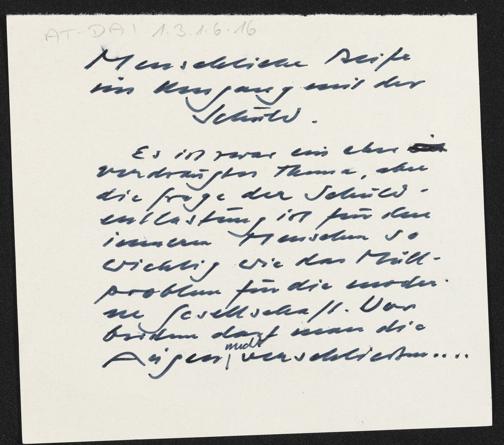 AT-DA! 1.3.1.6.16
Menschliche Reife
im Umgang mit der
Schuld.
Es ist zwar ein eher
verdrängtes Thema, aber
die Frage der Schuld-
entlastung ist für den
inneren Menschen so
wichtig wie das Müll-
problem für die moder-
ne Gesellschaft. Vor
beidem darf man die
Augen nicht verschließen....